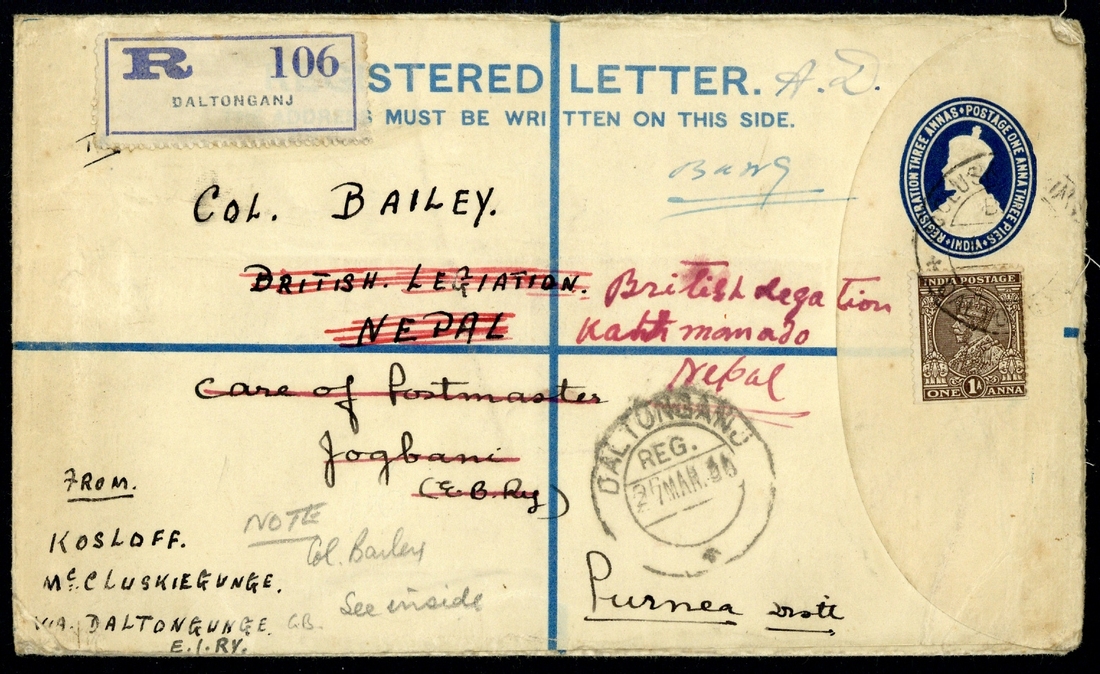 R 106
DALTONGANJ
STERED LETTER. A.D.
ADDRESS MUST BE WRITTEN ON THIS SIDE.
REGISTRATION THREE ANNAS • POSTAGE ONE ANNA THREE PIES •
INDIA
To
COL. BAILEY.
BRITISH. LEGIATION.
NEPAL
British Legation
Kathmandо
Nepal
INDIA POSTAGE
1A
ONE ANNA
Care of Postmaster
Jogbani
(E.B.Ry)
DALTONGANJ
REG.
27 MAR. 36
FROM.
KOSLOFF.
McCLUSKIEGUNGE.
VIA. DALTONGUNGE
E.I.RY.
NOTE
Col. Bailey
See inside
Purnea Distt